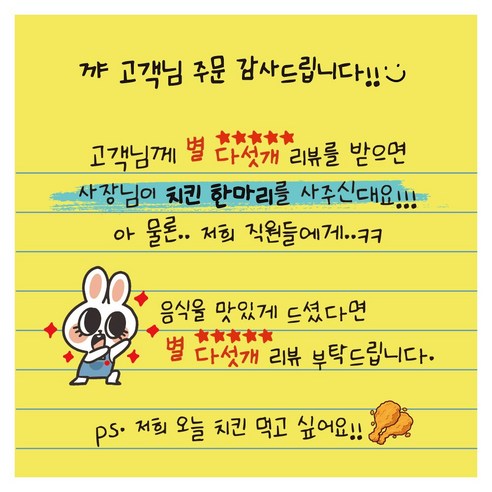 꺄 고객님 주문 감사드립니다!!
고객님께 별 다섯개 리뷰를 받으면
사장님이 치킨 한마리를 사주신대요!!!
아 물론.. 저희 직원들에게..ㅋㅋ
음식을 맛있게 드셨다면
별 다섯개 리뷰 부탁드립니다.
ps. 저희 오늘 치킨 먹고 싶어요!!